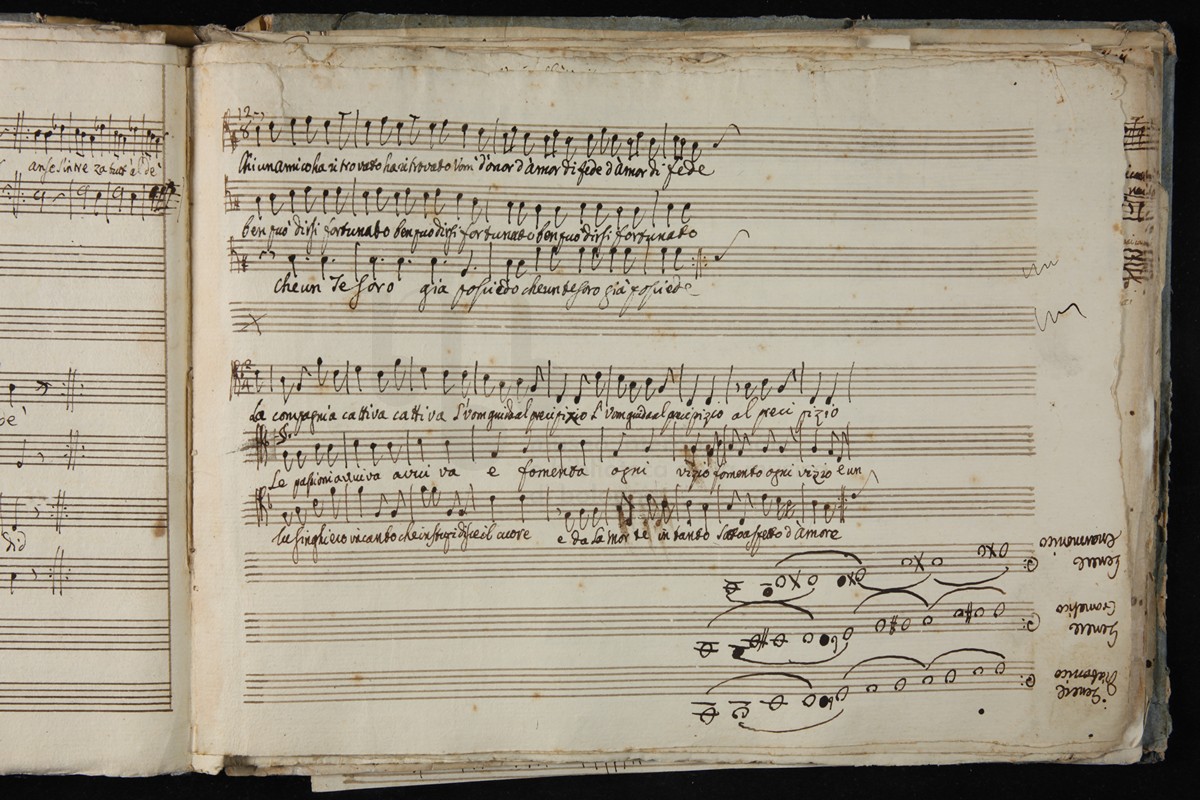 anse sinne za tutt' è
pè
Chi un amico hà ritrovato ha ritrovato Vom d'onor d'àmor di fede d'àmor di fede
ben può dirsi fortunato ben può dirsi fortunato ben può dirsi fortunato
che un Tesoro già possiede che un tesoro già possiede
La compagnia cattiva cattiva l'vom guida al precipizio l'vom guida al precipizio al preci pizio
Le passioni avviva avvi va e fomenta ogni vizio fomenta ogni vizio è un
lusinghiero incanto che instupidisce il cuore e da la morte in tanto sotto aspetto d'àmore
Genere Enarmonico
Genere Cromatico
Genere Diatonico